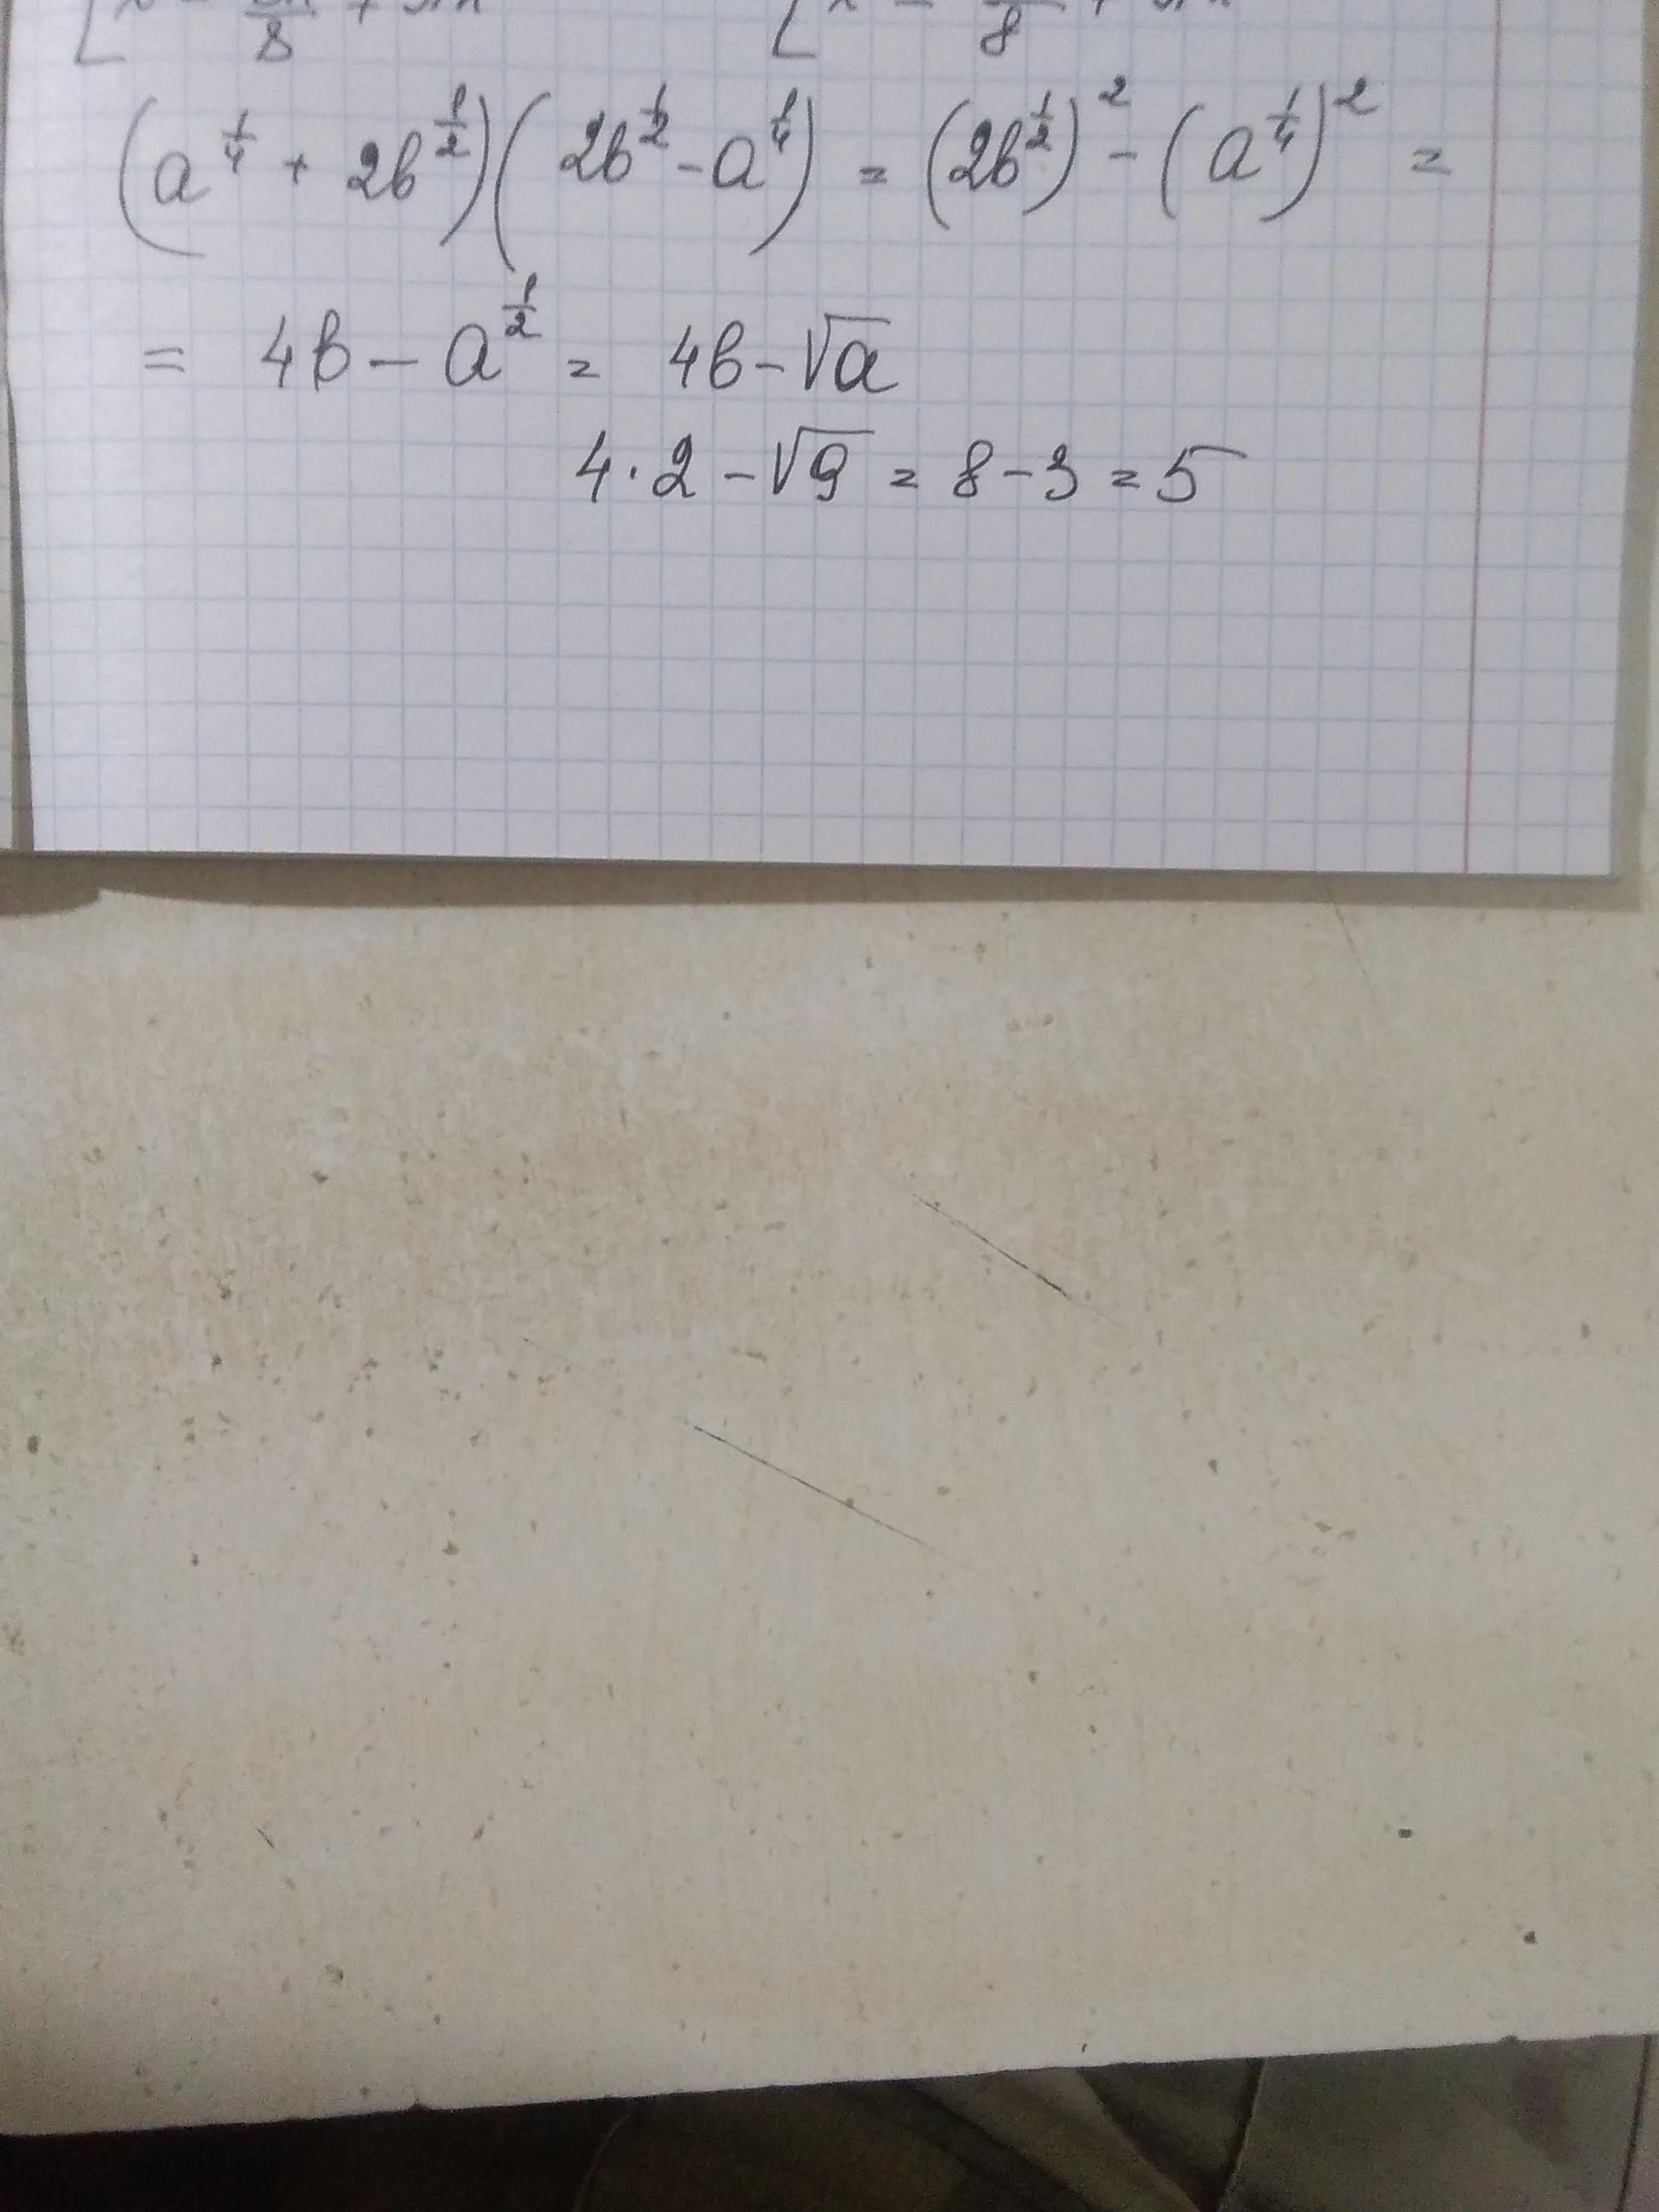 (a^{\frac{1}{4}} + 2b^{\frac{1}{2}})(2b^{\frac{1}{2}} - a^{\frac{1}{4}}) = (2b^{\frac{1}{2}})^2 - (a^{\frac{1}{4}})^2 =
= 4b - a^{\frac{1}{2}} = 4b - √a
4 · 2 - √9 = 8 - 3 = 5